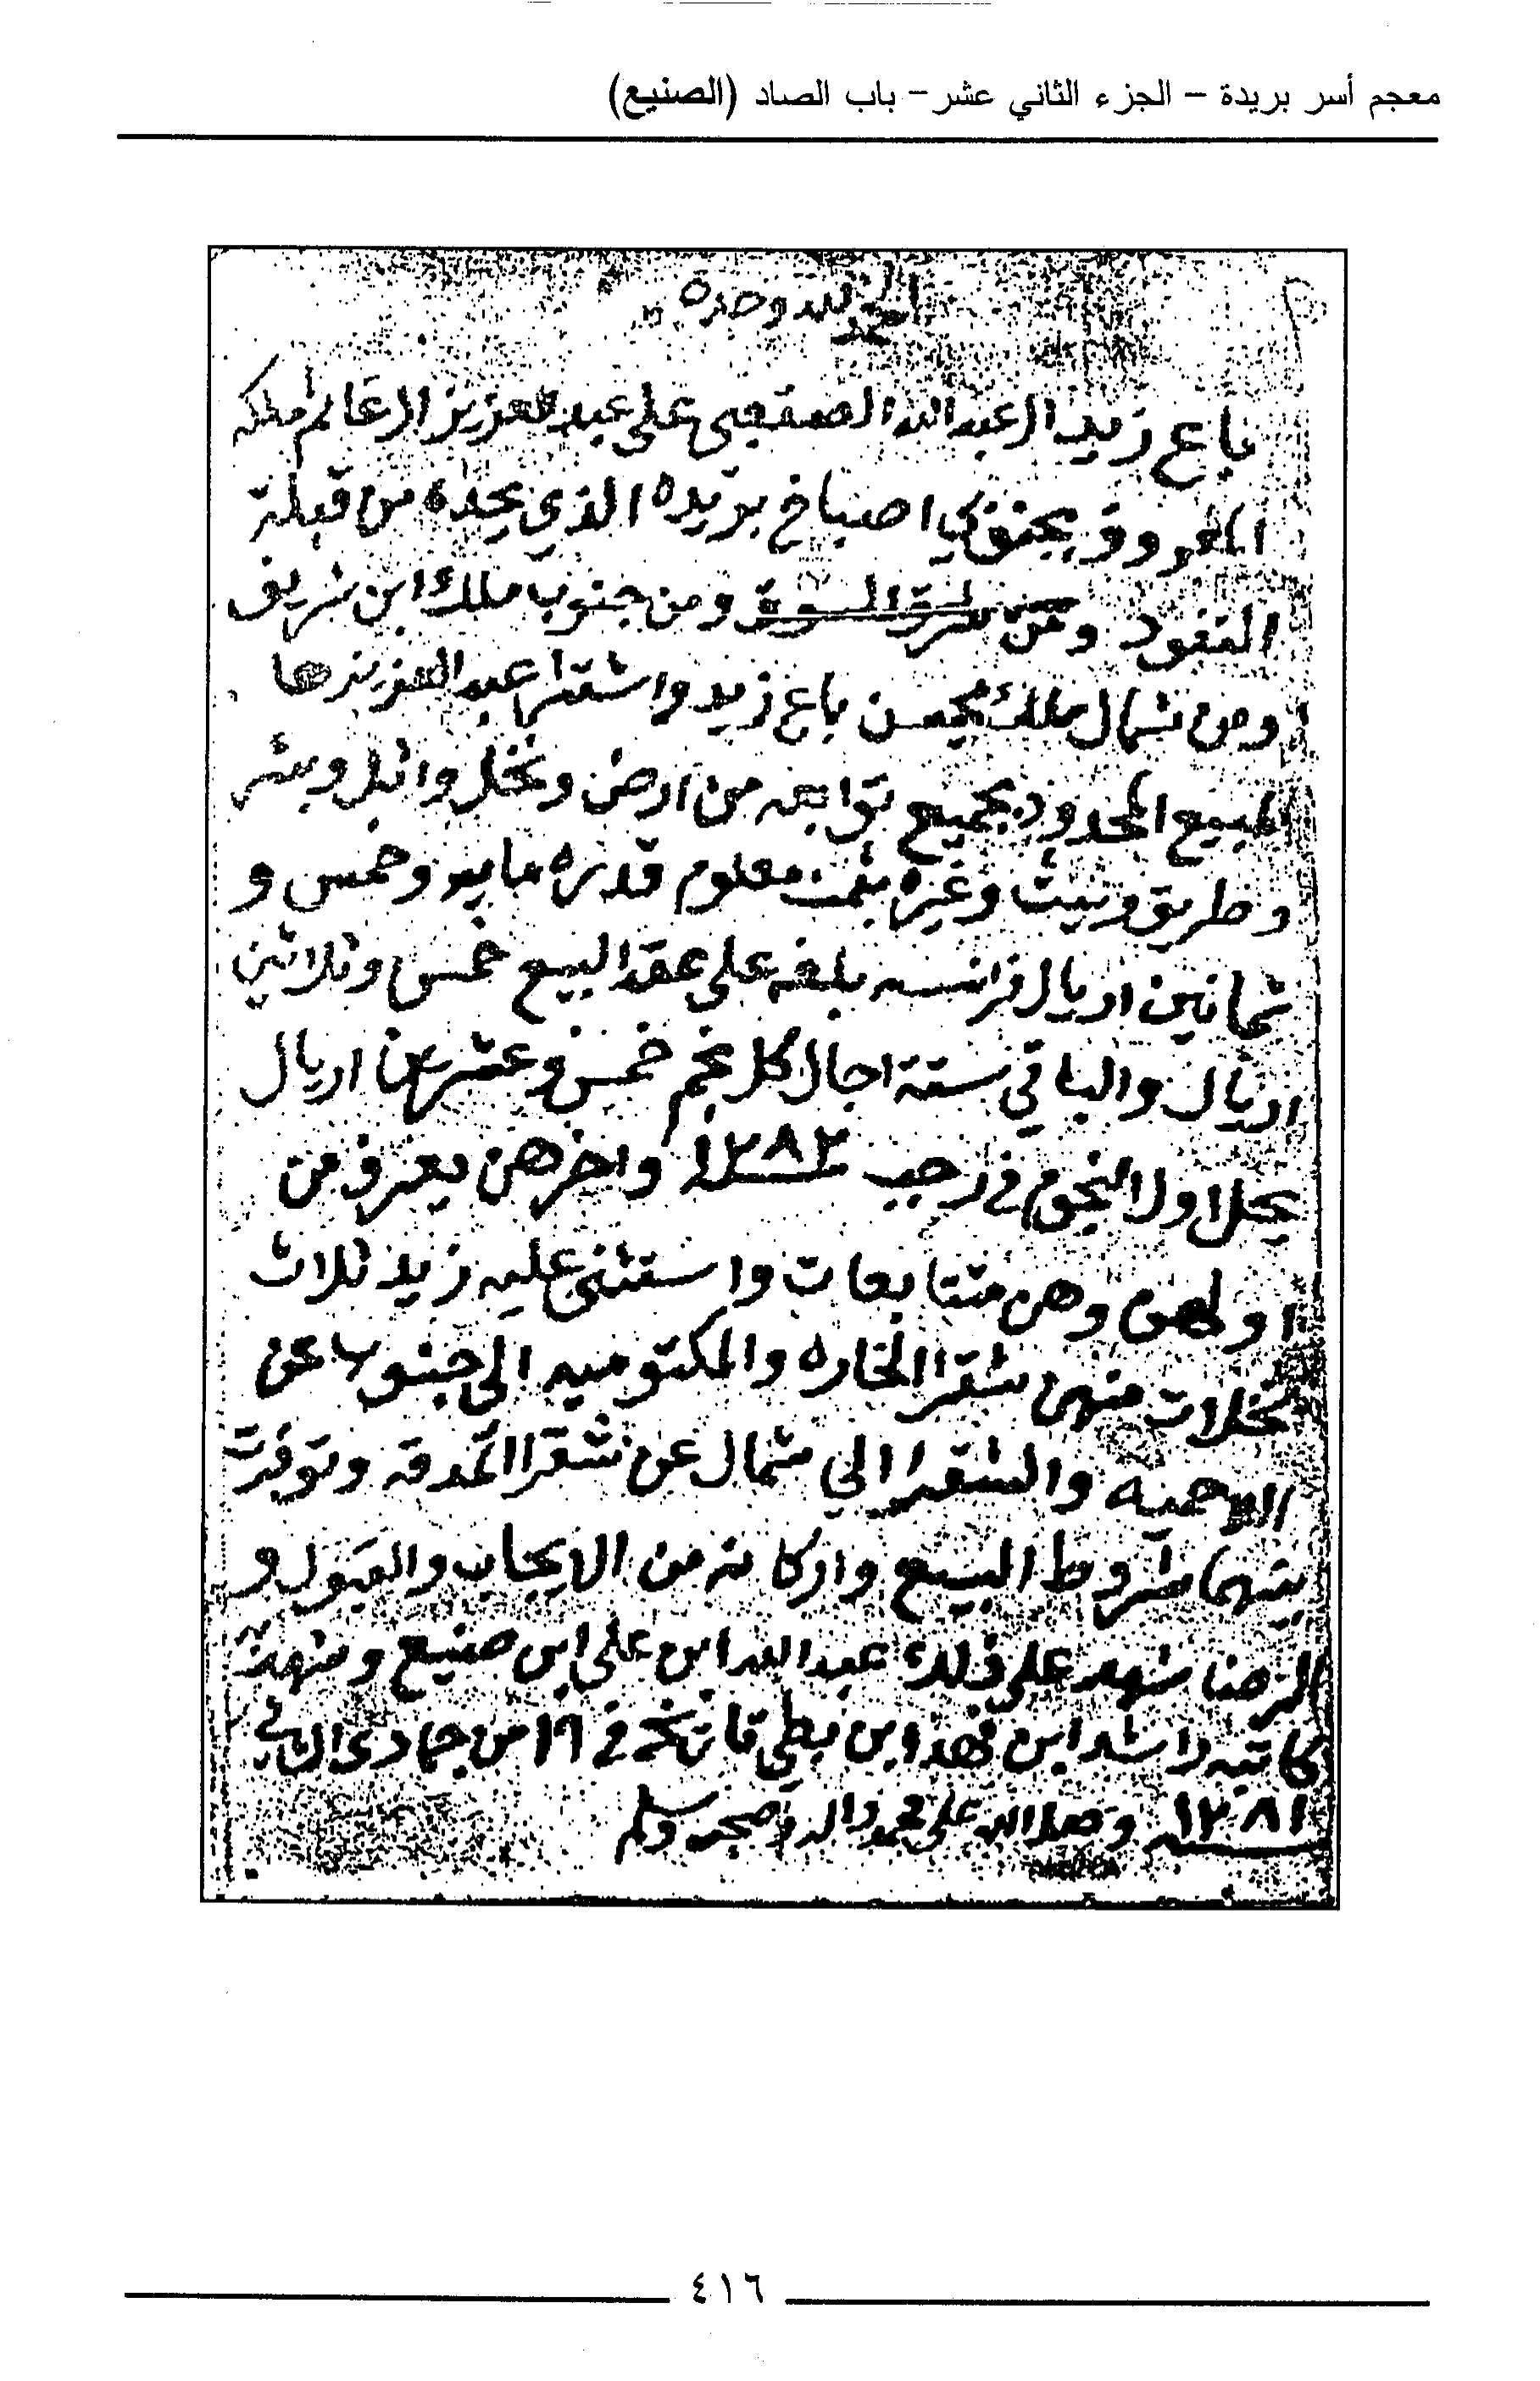 معجم أسر بريدة – الجزء الثاني عشر – باب الصاد (الصنيع)
الحمد لله وحده
باع زيد العبدالله الصقعبي على عبدالعزيز ال ملكه
المعروف بجنوبي اصباخ بريده الذي يحده من قبلة
النفود ومن شرق السوق ومن جنوب ملك ابن شريف
ومن شمال ملك محيسن باع زيد واشترا عبدالعزيز هذا
المبيع المحدود بجميع توابعه من ارض ونخل واثل وبئر
وطريق وبيت وغيره بثمن معلوم قدره مايه وخمس و
ثمانين اريال فرانسه بلغه على عقد البيع خمس وثلاثين
اريال والباقي ستة اجال كل نجم خمس وعشرين اريال
يحل اول النجوم في رجب ١٢٨٢ واخرهن يعرف من
اولهن وهن متتابعات واستثنى عليه زيد ثلاث
نخلات منهن شقرا والمكتوميه الى جنوب عن
والشقرا الي شمال عن شقرا وتوفرت
بينهما شروط البيع واركانه من الايجاب والقبول و
الرضا شهد على ذلك عبدالله ابن علي ابن صنيع وشهد به
كاتبه راشد ابن فهد ابن بطي تاريخه في ١٦ من جمادى الثاني
١٢٨١ وصلى الله على محمد واله وصحبه وسلم
٤١٦